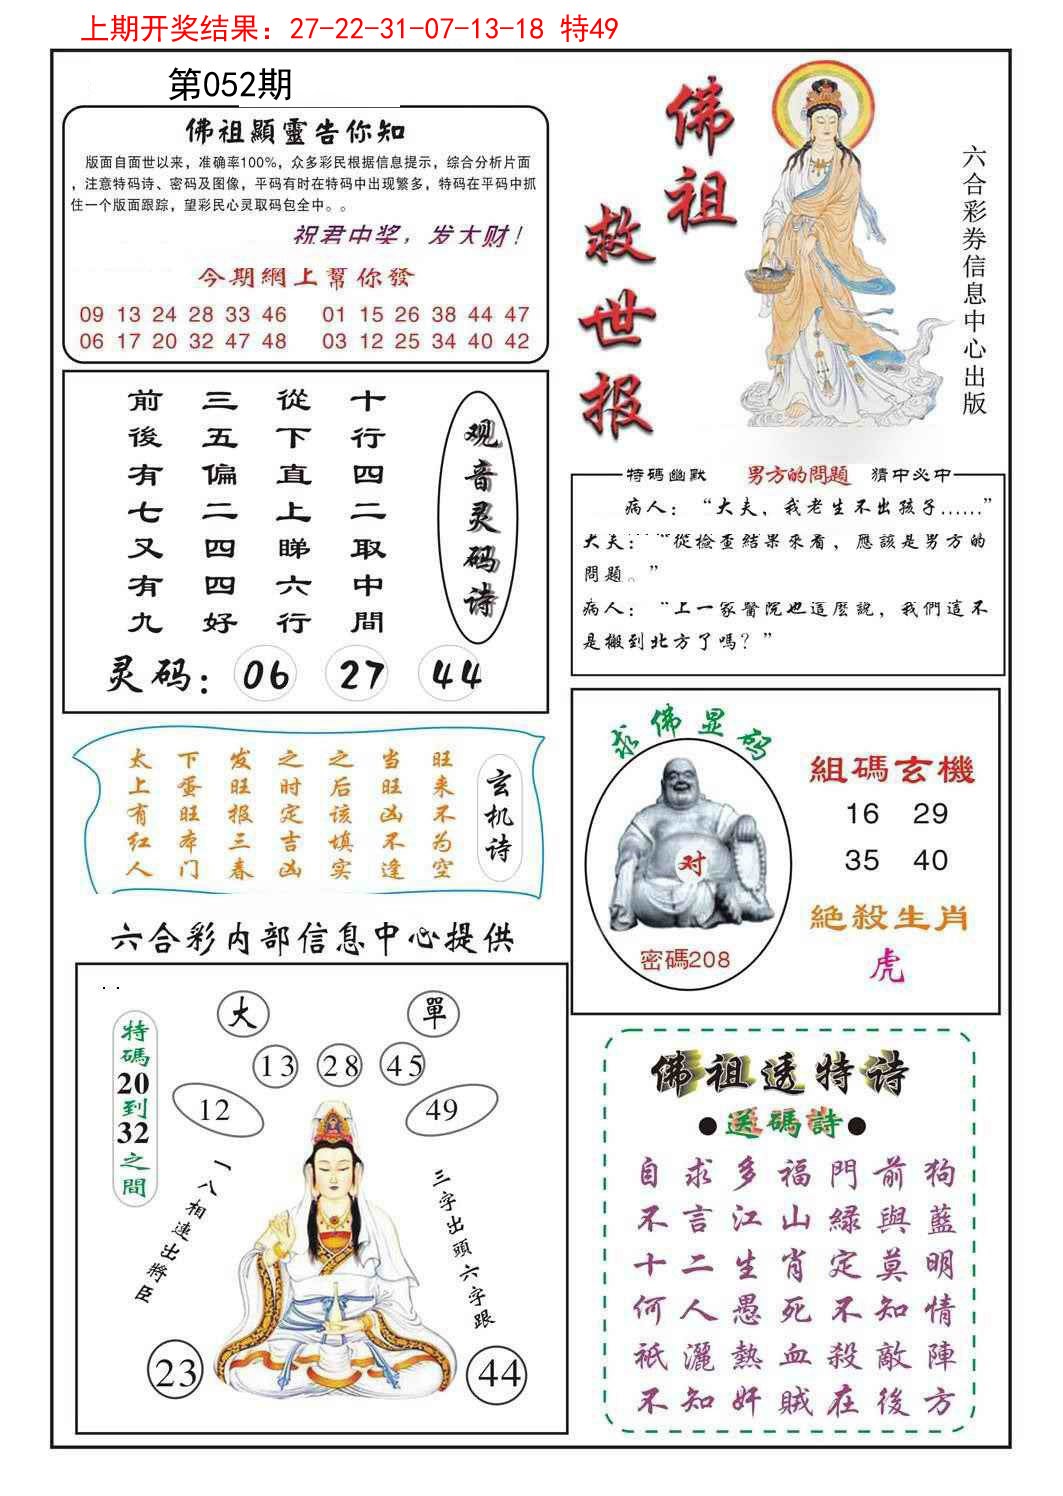 上期开奖结果：27-22-31-07-13-18 特49
第052期
佛祖顯靈告你知
版面自面世以来，准确率100%，众多彩民根据信息提示，综合分析片面
，注意特码诗、密码及图像，平码有时在特码中出现繁多，特码在平码中抓
住一个版面跟踪，望彩民心灵取码包全中。。
祝君中奖，发大财！
今期網上幫你發
09 13 24 28 33 46 01 15 26 38 44 47
06 17 20 32 47 48 03 12 25 34 40 42
佛祖
救世报
六合彩券信息中心出版
观音灵码诗
十行四二取中間
從下直上睇六行
三五偏二四四好
前後有七又有九
灵码：06 27 44
特碼幽默 男方的問題 猜中必中
病人：“大夫，我老生不出孩子……”
大夫：“從檢查結果來看，應該是男方的
問題。”
病人：“上一家醫院也這麽說，我們這不
是搬到北方了嗎？”
玄机诗
旺来不为空
当旺凶不逢
之后该填实
之时定吉凶
发旺报三春
下蛋旺本门
太上有红人
求佛显码
对
密碼208
組碼玄機
16 29
35 40
絕殺生肖
虎
六合彩内部信息中心提供
大 單
13 28 45
12 49
特碼20到32之間
一八相連出將臣
三字出頭六字跟
23 44
佛祖透特诗
●送碼詩●
自求多福門前狗
不言江山緑與藍
十二生肖定莫明
何人愚死不知情
衹灑熱血殺敵陣
不知奸賊在後方